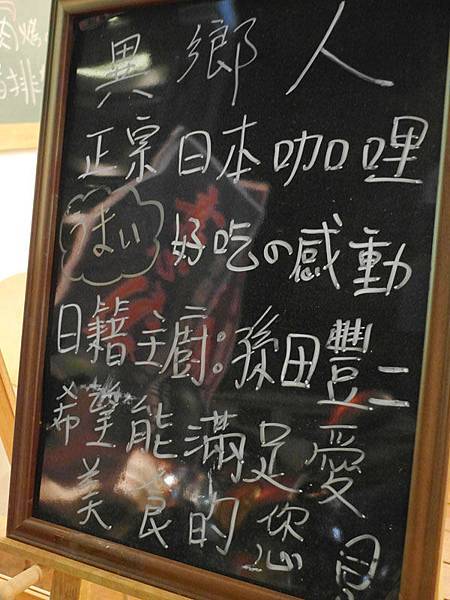 異鄉人
正宗日本咖哩
うまい 好吃の感動
日籍主廚:孫田豐二
希望能滿足愛
美食的您